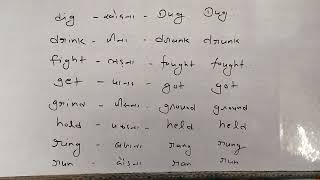 dig - खोदना - Dug Dug
drink - पीना - drunk drunk
fight - लड़ना - fought fought
get - पाना - got got
grind - पीसना - ground ground
hold - पकड़ना - held held
ring - बजना - rang rung
run - दौड़ना - ran run